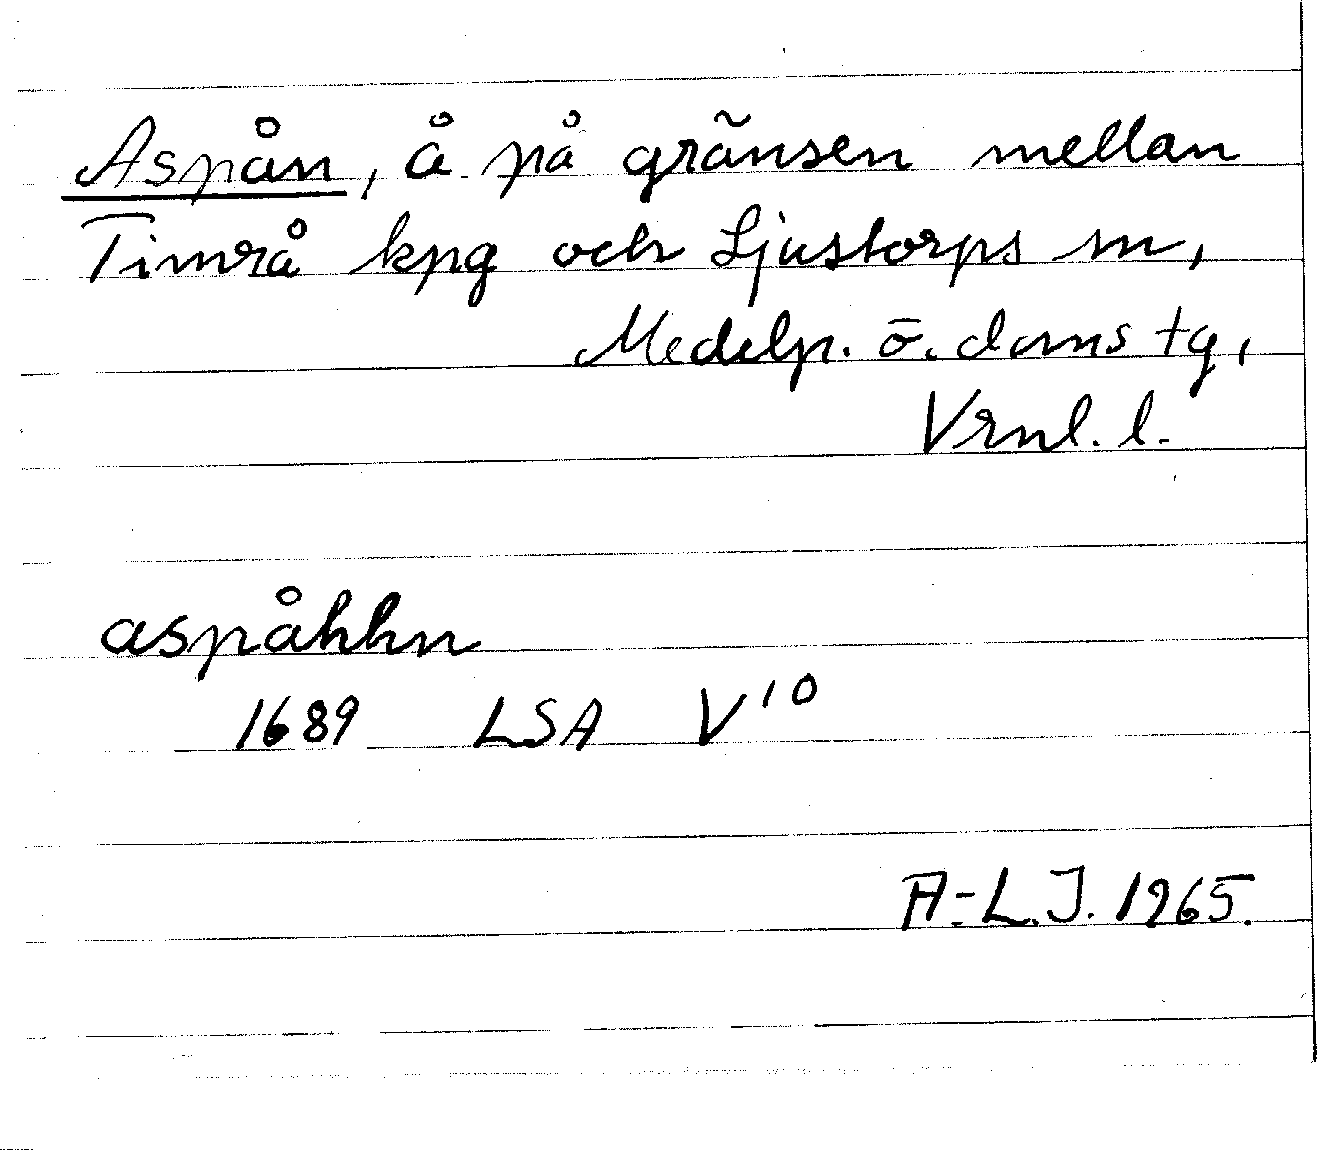 Aspån, å på gränsen mellan
Timrå kpg och Ljustorps sn,
Medelp. ö. doms tg,
Vrnl. l.
aspåhhn
1689 LSA V¹⁰
A-L.J. 1965.